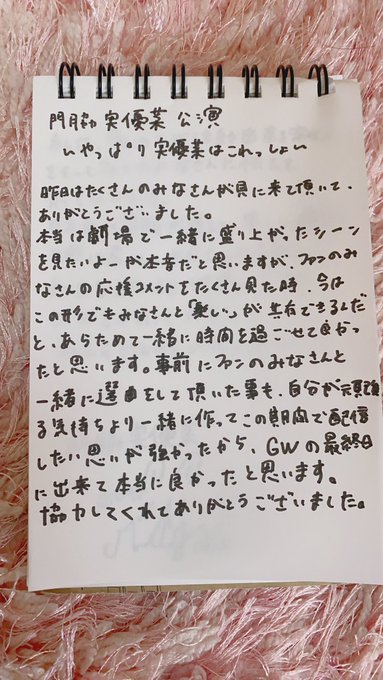 門脇 実優菜 公演
いやっぱり実優菜はこれっしょい
昨日はたくさんのみなさんが見に来て頂いて、
ありがとうございました。
本当は劇場で一緒に盛り上がったシーン
を見たいよーが本音だと思いますが、ファンのみ
なさんの応援コメントをたくさん見た時、今は
この形でもみなさんと「楽しい」が共有できるんだ
と、あらためて一緒に時間を過ごせて良かっ
たと思います。事前にファンのみなさんと
一緒に選曲をして頂いた事も、自分が頑張
る気持ちより一緒に作ってこの期間で配信
したい思いが強かったから、GWの最終日
に出来て本当に良かったと思います。
協力してくれてありがとうございました。